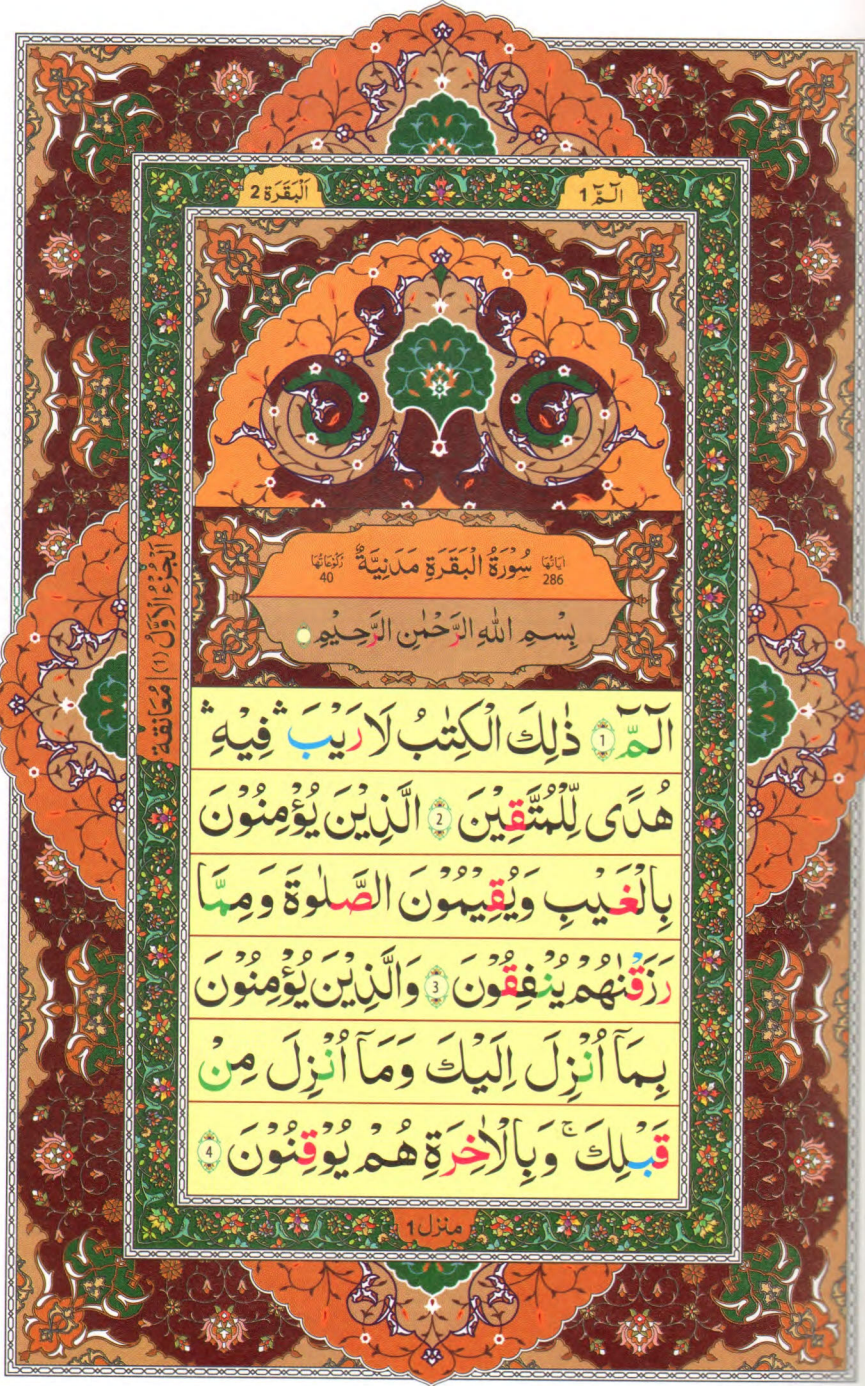 الٓمّٓ 1
اَلْبَقَرَة 2
اٰيَاتُهَا 286 سُوْرَةُ الْبَقَرَةِ مَدَنِيَّةٌ رُكُوْعَاتُهَا 40
بِسْمِ اللّٰهِ الرَّحْمٰنِ الرَّحِيْمِ
الٓمّٓ 1 ذٰلِكَ الْكِتٰبُ لَا رَيْبَ ۛ فِيْهِ ۛ
هُدًى لِّلْمُتَّقِيْنَ 2 الَّذِيْنَ يُؤْمِنُوْنَ
بِالْغَيْبِ وَيُقِيْمُوْنَ الصَّلٰوةَ وَمِمَّا
رَزَقْنٰهُمْ يُنْفِقُوْنَ 3 وَالَّذِيْنَ يُؤْمِنُوْنَ
بِمَآ اُنْزِلَ اِلَيْكَ وَمَآ اُنْزِلَ مِنْ
قَبْلِكَ ۚ وَبِالْاٰخِرَةِ هُمْ يُوْقِنُوْنَ 4
اَلْجُزْءُ الْاَوَّلُ (1) مُعَانَقَة
منزل 1